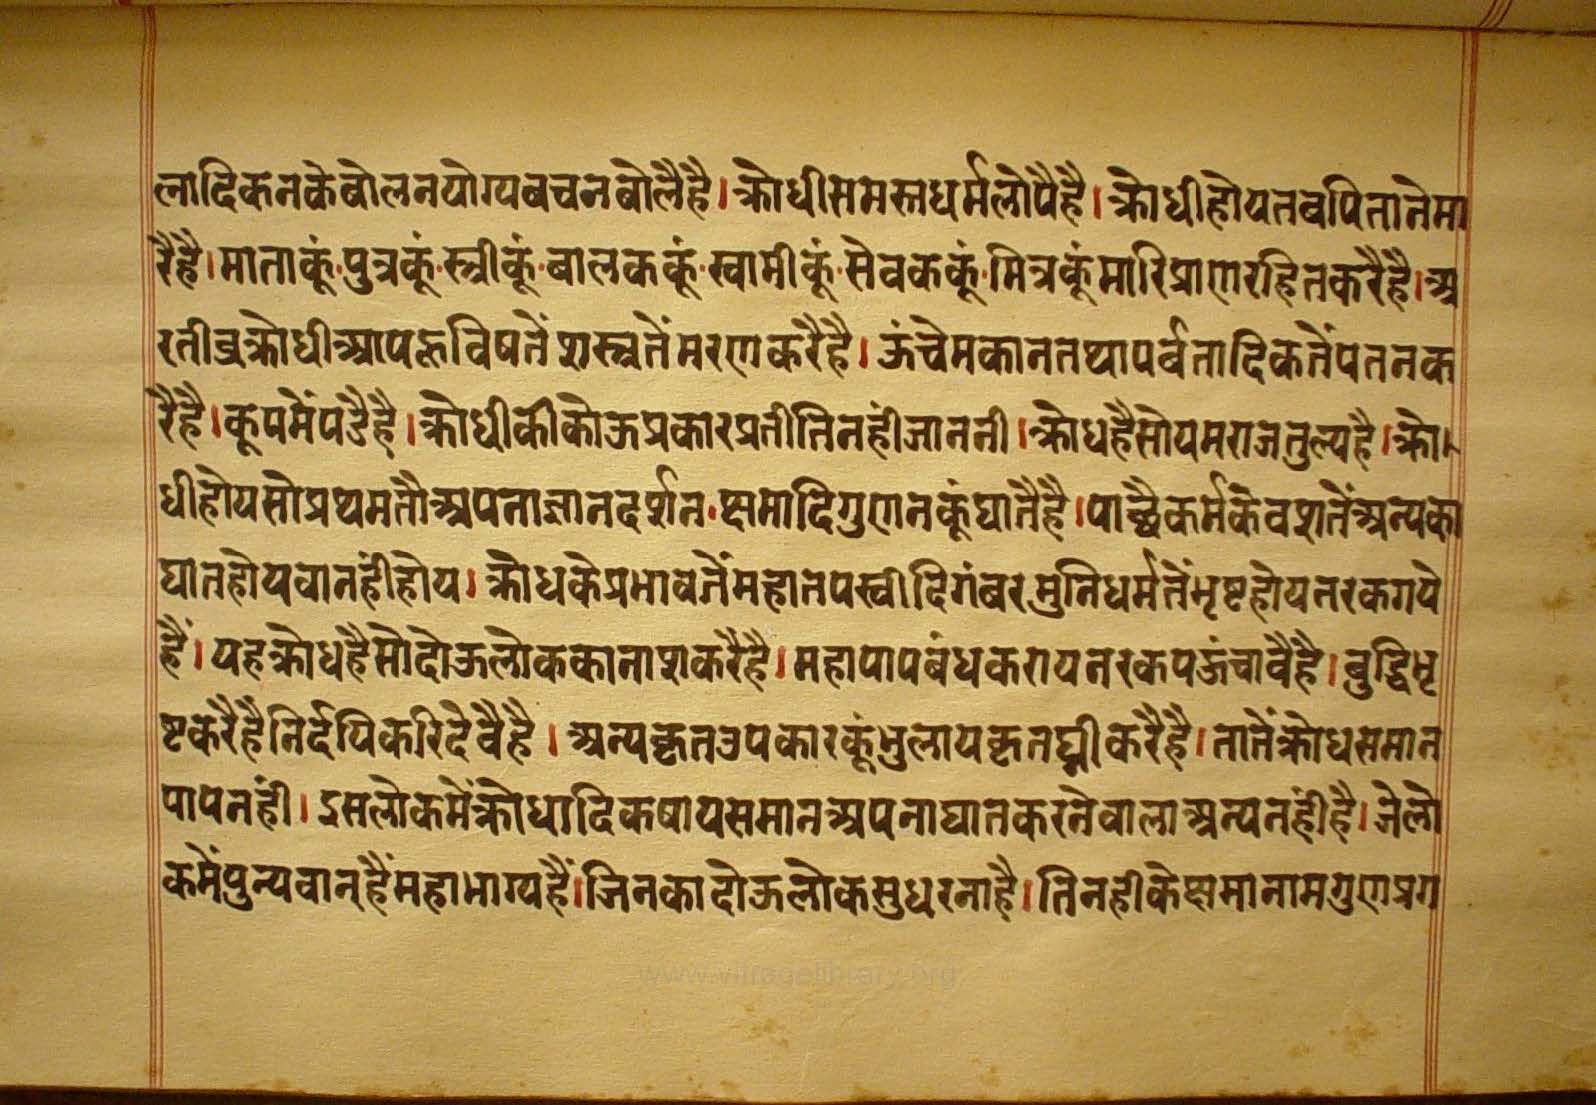 लादिकनकेबोलनयोग्यबचनबोलैहै। क्रोधीसमस्तधर्मलोपैहै। क्रोधीहोयतबपितानेमा
रैहै। माताकूं·पुत्रकूं·स्त्रीकूं·बालककूं·स्वामीकूं·सेवककूं·मित्रकूंमारिप्राणरहितकरैहै।अ
रतीव्रक्रोधीआपहूविषतेंशस्त्रतेंमरणकरैहै। ऊंचेमकानतथापर्वतादिकतेंपतनक
रैहै। कूपमेंपडैहै। क्रोधीकीकोऊप्रकारप्रतीतिनहींजाननी। क्रोधहैसोयमराजतुल्यहै। क्रो
धीहोयसोप्रथमतौअपनाज्ञानदर्शन·क्षमादिगुणनकूंघातैहै। पाछैकर्मकेवशतेंअन्यका
घातहोयवानहींहोय। क्रोधकेप्रभावतेंमहातपस्वीदिगंबरमुनिधर्मतेंभृष्टहोयनरकगये
हैं। यहक्रोधहैसोदोऊलोककानाशकरैहै। महापापबंधकरायनरकपऊंचावैहै। बुद्धिभृ
ष्टकरैहैनिर्दयिकरिदेवैहै। अन्यकृतउपकारकूंभुलायकृतघ्नीकरैहै। तातेंक्रोधसमान
पापनहीं। इसलोकमेंक्रोधादिकषायसमानअपनाघातकरनेवालाअन्यनहींहै। जेलो
कमेंपुन्यवान्हैंमहाभाग्यहैं।जिनकादोऊलोकसुधरनाहै। तिनहीकेक्षमानामगुणप्रग
www.vitragelibrary.org